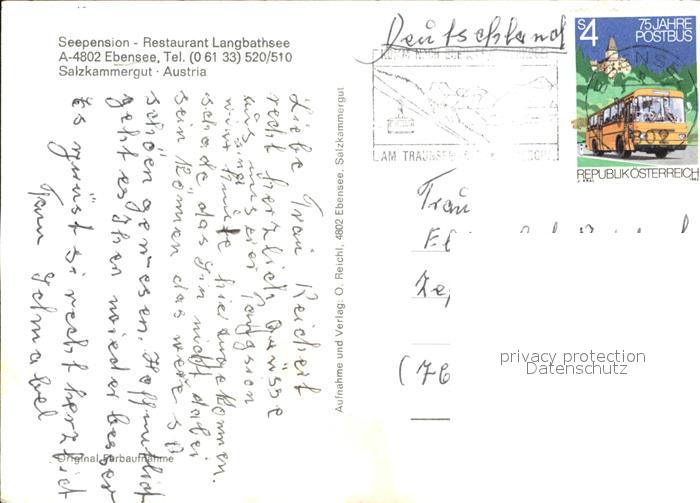 Seepension - Restaurant Langbathsee
A-4802 Ebensee, Tel. (0 61 33) 520/510
Salzkammergut · Austria
Liebe Frau Reichert
recht herzliche Grüsse
aus unserer
wir sind heute hier angekommen.
schade das Sie nicht dabei
sein können das wäre so
schön gewesen. Hoffentlich
geht es Ihnen wieder besser
Es grüsst sie recht herzlich
Frau Schnabel
Original Farbaufnahme
Aufnahme und Verlag: O. Reichl, 4802 Ebensee, Salzkammergut
Deutschland
AM TRAUNSEE
S 4
75 JAHRE
POSTBUS
REPUBLIK ÖSTERREICH
Frau
(76
privacy protection
Datenschutz